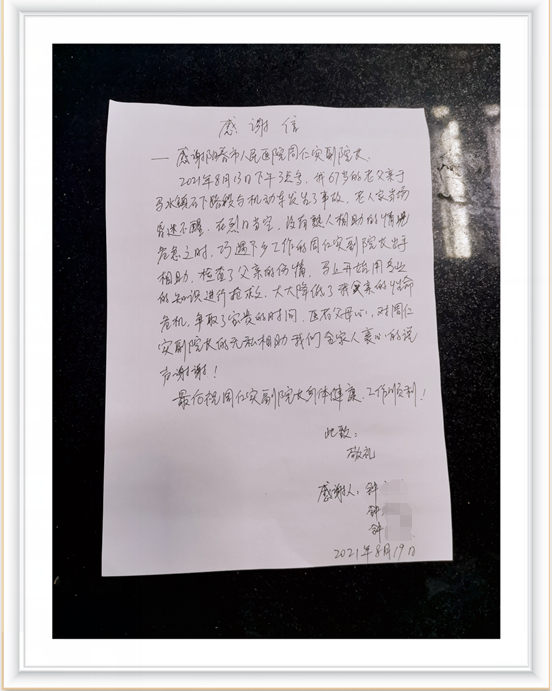 感谢信
——感谢阳春市人民医院周仁实副院长
2021年8月13日下午3点多，我67岁的老父亲于
马水镇石下路段与机动车发生了事故，老人家当场
昏迷不醒，在烈日当空，没有熟人相助的情况
危急之时，巧遇下乡工作的周仁实副院长出手
相助，检查了父亲的伤情，马上开始用专业
的知识进行抢救，大大降低了我父亲的性命
危机，争取了宝贵的时间，医者父母心，对周仁
实副院长的无私相助我们全家人衷心的说
声谢谢！
最后祝周仁实副院长身体健康、工作顺利！
此致：
敬礼
感谢人：钟
钟
钟
2021年8月19日